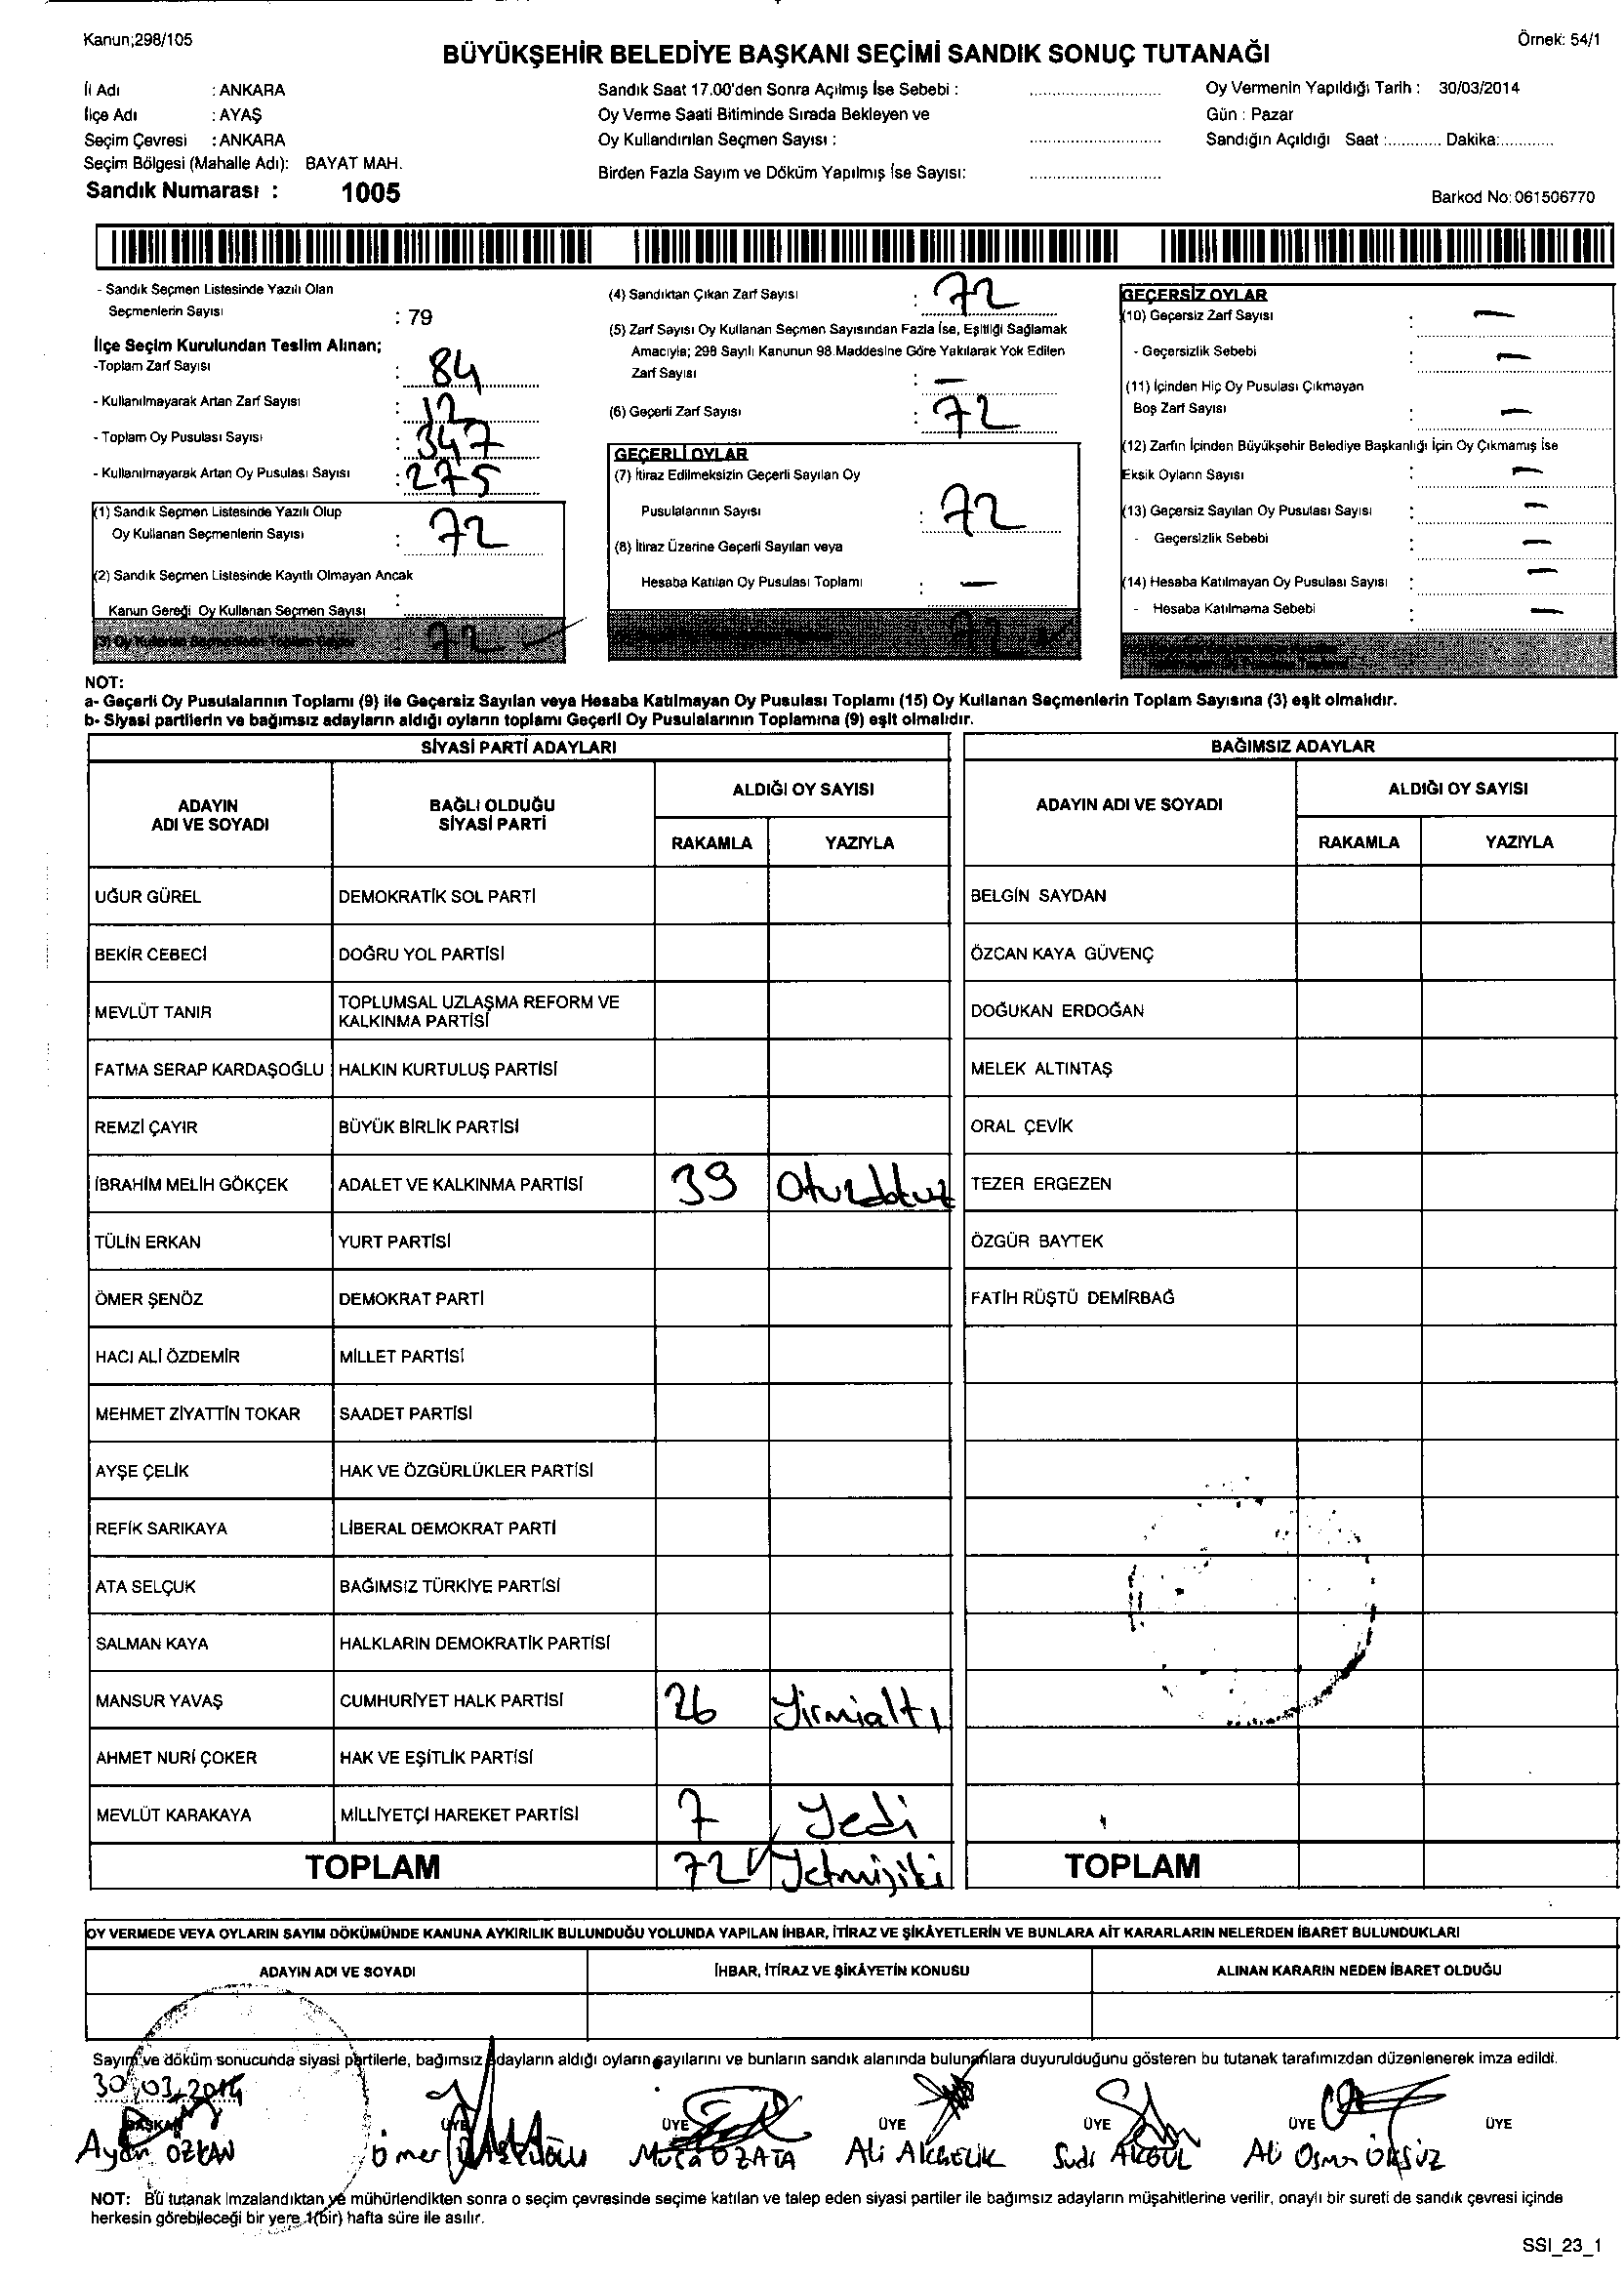 Kanun;298/105
Örnek: 54/1
BÜYÜKŞEHİR BELEDİYE BAŞKANI SEÇİMİ SANDIK SONUÇ TUTANAĞI
İl Adı : ANKARA
İlçe Adı : AYAŞ
Seçim Çevresi : ANKARA
Seçim Bölgesi (Mahalle Adı): BAYAT MAH.
Sandık Numarası : 1005
Sandık Saat 17.00'den Sonra Açılmış İse Sebebi :
Oy Verme Saati Bitiminde Sırada Bekleyen ve
Oy Kullandırılan Seçmen Sayısı :
Birden Fazla Sayım ve Döküm Yapılmış İse Sayısı:
Oy Vermenin Yapıldığı Tarih : 30/03/2014
Gün : Pazar
Sandığın Açıldığı Saat :............ Dakika:............
Barkod No:061506770
- Sandık Seçmen Listesinde Yazılı Olan
Seçmenlerin Sayısı : 79
İlçe Seçim Kurulundan Teslim Alınan;
-Toplam Zarf Sayısı : 84
- Kullanılmayarak Artan Zarf Sayısı : 12
- Toplam Oy Pusulası Sayısı : 347
- Kullanılmayarak Artan Oy Pusulası Sayısı : 275
(1) Sandık Seçmen Listesinde Yazılı Olup
Oy Kullanan Seçmenlerin Sayısı : 72
(2) Sandık Seçmen Listesinde Kayıtlı Olmayan Ancak
Kanun Gereği Oy Kullanan Seçmen Sayısı :
(3) Oy Kullanan Seçmenlerin Toplam Sayısı 72
(4) Sandıktan Çıkan Zarf Sayısı : 72
(5) Zarf Sayısı Oy Kullanan Seçmen Sayısından Fazla İse, Eşitliği Sağlamak
Amacıyla; 298 Sayılı Kanunun 98.Maddesine Göre Yakılarak Yok Edilen
Zarf Sayısı : —
(6) Geçerli Zarf Sayısı : 72
GEÇERLİ OYLAR
(7) İtiraz Edilmeksizin Geçerli Sayılan Oy
Pusulalarının Sayısı : 72
(8) İtiraz Üzerine Geçerli Sayılan veya
Hesaba Katılan Oy Pusulası Toplamı : —
72
GEÇERSİZ OYLAR
(10) Geçersiz Zarf Sayısı : —
- Geçersizlik Sebebi : —
(11) İçinden Hiç Oy Pusulası Çıkmayan
Boş Zarf Sayısı : —
(12) Zarfın İçinden Büyükşehir Belediye Başkanlığı İçin Oy Çıkmamış İse
Eksik Oyların Sayısı : —
(13) Geçersiz Sayılan Oy Pusulası Sayısı : —
- Geçersizlik Sebebi : —
(14) Hesaba Katılmayan Oy Pusulası Sayısı : —
- Hesaba Katılmama Sebebi : —
NOT:
a- Geçerli Oy Pusulalarının Toplamı (9) ile Geçersiz Sayılan veya Hesaba Katılmayan Oy Pusulası Toplamı (15) Oy Kullanan Seçmenlerin Toplam Sayısına (3) eşit olmalıdır.
b- Siyasi partilerin ve bağımsız adayların aldığı oyların toplamı Geçerli Oy Pusulalarının Toplamına (9) eşit olmalıdır.
SİYASİ PARTİ ADAYLARI
ADAYIN ADI VE SOYADI
BAĞLI OLDUĞU SİYASİ PARTİ
ALDIĞI OY SAYISI
RAKAMLA YAZIYLA
UĞUR GÜREL DEMOKRATİK SOL PARTİ
BEKİR CEBECİ DOĞRU YOL PARTİSİ
MEVLÜT TANIR TOPLUMSAL UZLAŞMA REFORM VE
KALKINMA PARTİSİ
FATMA SERAP KARDAŞOĞLU HALKIN KURTULUŞ PARTİSİ
REMZİ ÇAYIR BÜYÜK BİRLİK PARTİSİ
İBRAHİM MELİH GÖKÇEK ADALET VE KALKINMA PARTİSİ 39 Otuzdokuz
TÜLİN ERKAN YURT PARTİSİ
ÖMER ŞENÖZ DEMOKRAT PARTİ
HACI ALİ ÖZDEMİR MİLLET PARTİSİ
MEHMET ZİYATTİN TOKAR SAADET PARTİSİ
AYŞE ÇELİK HAK VE ÖZGÜRLÜKLER PARTİSİ
REFİK SARIKAYA LİBERAL DEMOKRAT PARTİ
ATA SELÇUK BAĞIMSIZ TÜRKİYE PARTİSİ
SALMAN KAYA HALKLARIN DEMOKRATİK PARTİSİ
MANSUR YAVAŞ CUMHURİYET HALK PARTİSİ 26 Yirmialtı
AHMET NURİ ÇOKER HAK VE EŞİTLİK PARTİSİ
MEVLÜT KARAKAYA MİLLİYETÇİ HAREKET PARTİSİ 7 Yedi
TOPLAM 72 Yetmişiki
BAĞIMSIZ ADAYLAR
ADAYIN ADI VE SOYADI
ALDIĞI OY SAYISI
RAKAMLA YAZIYLA
BELGİN SAYDAN
ÖZCAN KAYA GÜVENÇ
DOĞUKAN ERDOĞAN
MELEK ALTINTAŞ
ORAL ÇEVİK
TEZER ERGEZEN
ÖZGÜR BAYTEK
FATİH RÜŞTÜ DEMİRBAĞ
TOPLAM
OY VERMEDE VEYA OYLARIN SAYIM DÖKÜMÜNDE KANUNA AYKIRILIK BULUNDUĞU YOLUNDA YAPILAN İHBAR, İTİRAZ VE ŞİKÂYETLERİN VE BUNLARA AİT KARARLARIN NELERDEN İBARET BULUNDUKLARI
ADAYIN ADI VE SOYADI
İHBAR, İTİRAZ VE ŞİKÂYETİN KONUSU
ALINAN KARARIN NEDEN İBARET OLDUĞU
Sayım ve döküm sonucunda siyasi partilerle, bağımsız adayların aldığı oyların sayılarını ve bunların sandık alanında bulunanlara duyurulduğunu gösteren bu tutanak tarafımızdan düzenlenerek imza edildi.
30/03/2014
BAŞKAN ÜYE ÜYE ÜYE ÜYE ÜYE ÜYE
Aydın ÖZKAN Ömer Musa ÖZATA Ali AKÇELİK Sudi AKGÜL Ali Osman ÖKSÜZ
NOT: Bu tutanak imzalandıktan ve mühürlendikten sonra o seçim çevresinde seçime katılan ve talep eden siyasi partiler ile bağımsız adayların müşahitlerine verilir, onaylı bir sureti de sandık çevresi içinde
herkesin görebileceği bir yere 1(bir) hafta süre ile asılır.
SSI_23_1